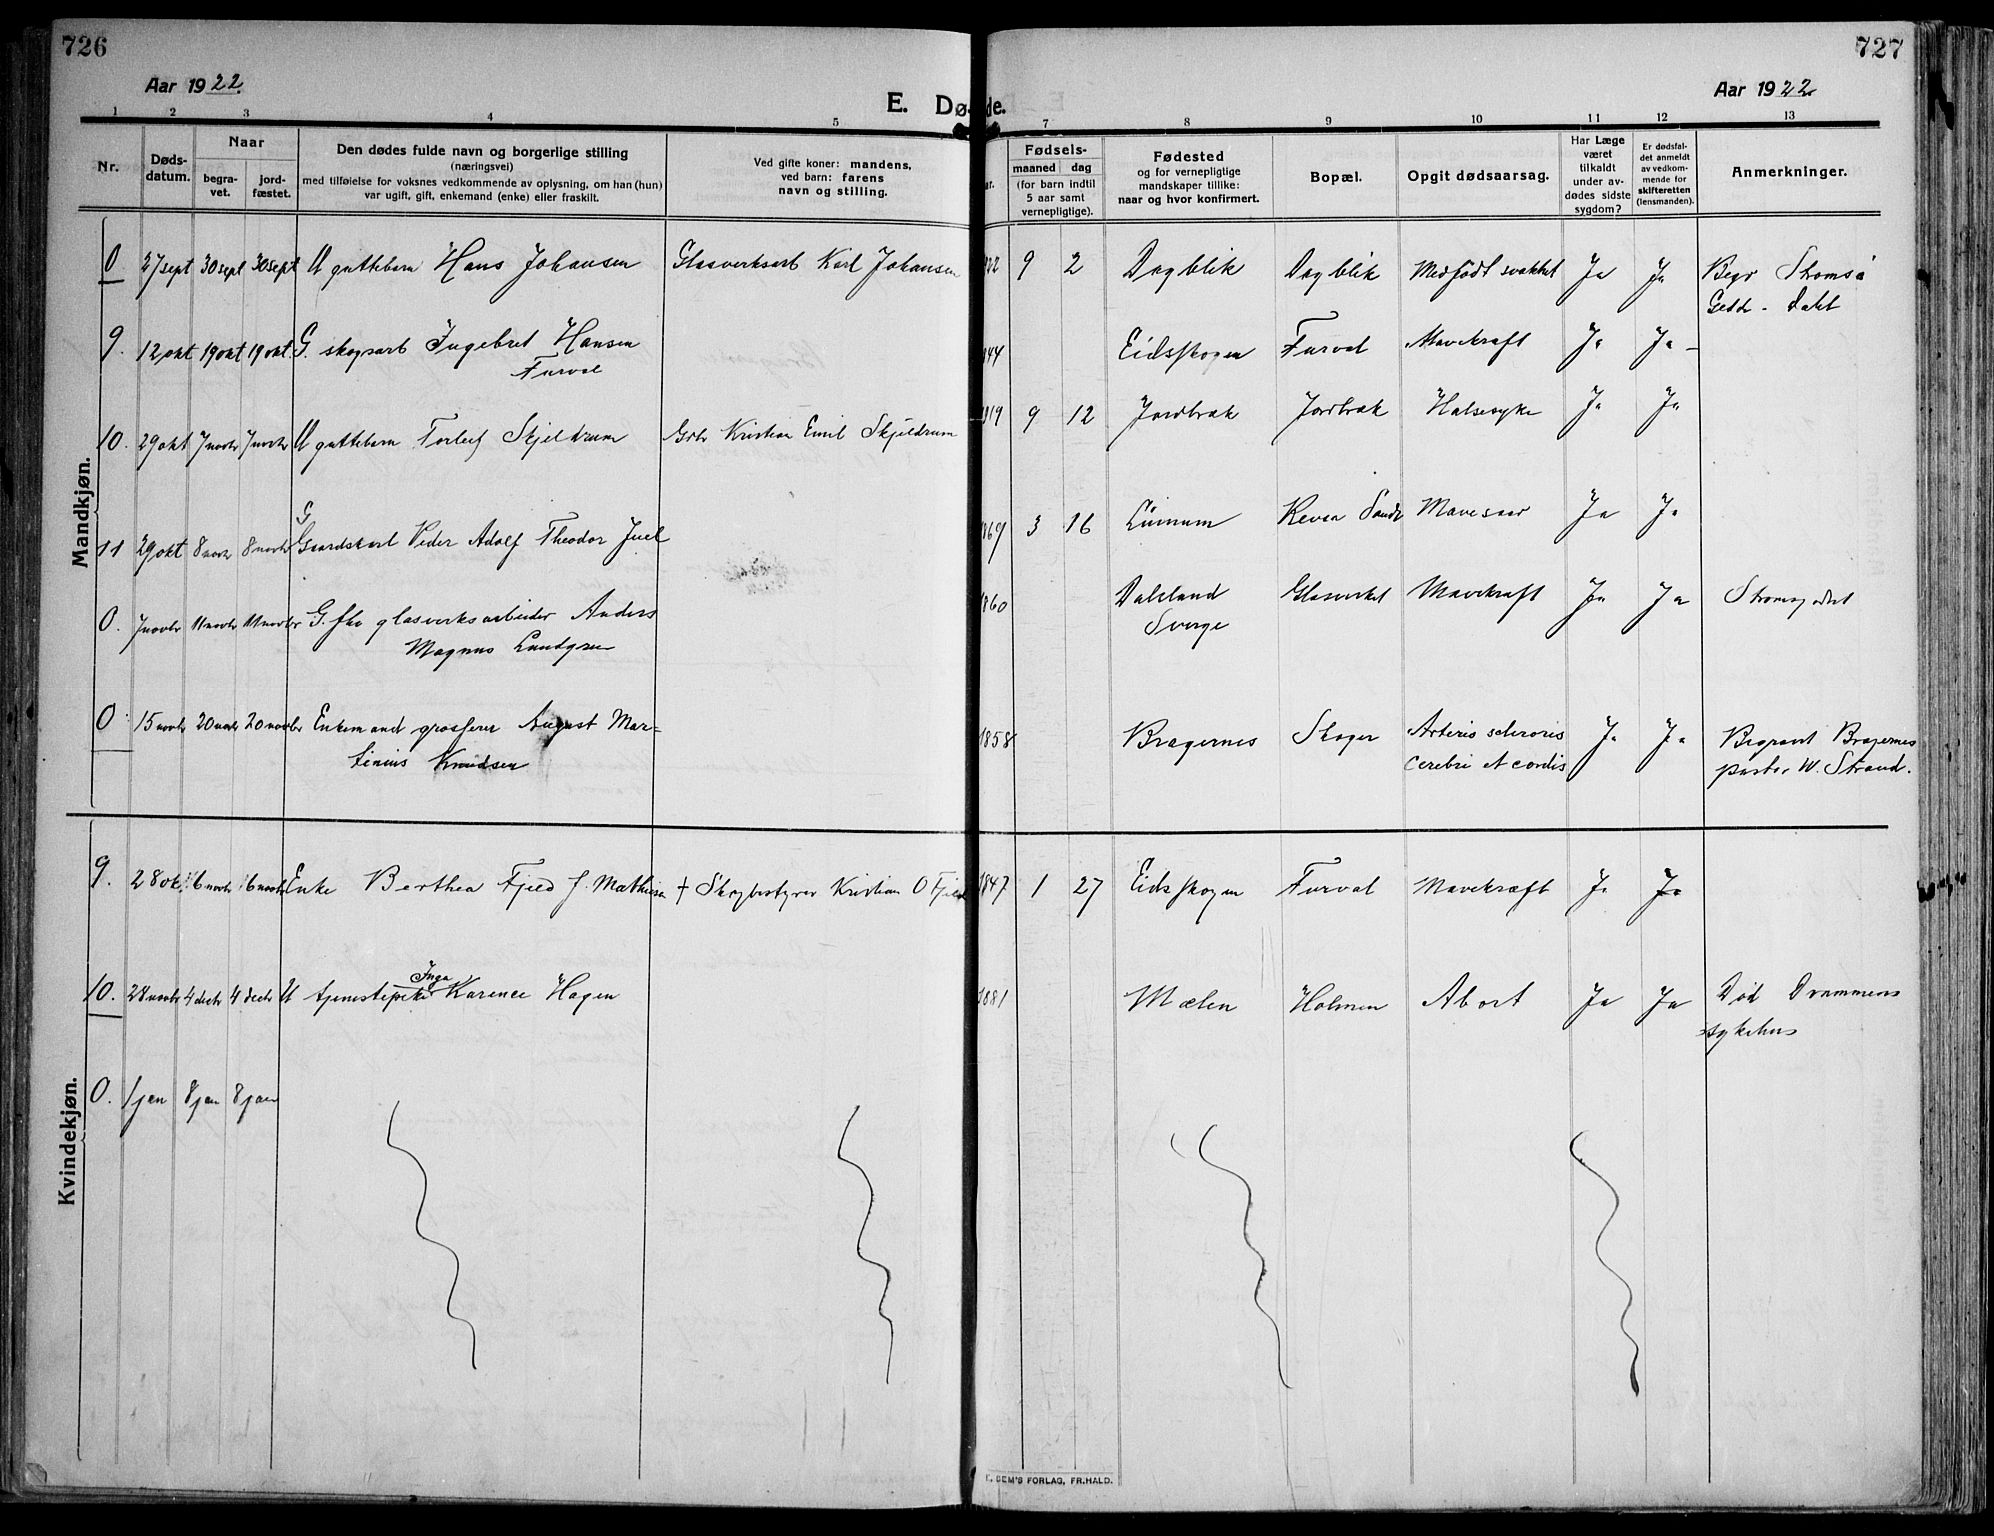 726
727
Aar 1922.
Aar 1922.
E. Dø de.
1 2 3 4 5 7 8 9 10 11 12 13
Nr.
Døds-
datum.
Naar
begra-
vet.
jord-
fæstet.
Den dødes fulde navn og borgerlige stilling
(næringsvei)
med tilføielse for voksnes vedkommende av oplysning, om han (hun)
var ugift, gift, enkemand (enke) eller fraskilt.
Ved gifte koner: mandens,
ved barn: farens
navn og stilling.
Fødsels-
maaned dag
(for barn indtil
5 aar samt
vernepligtige).
Fødested
og for vernepligtige
mandskaper tillike:
naar og hvor konfirmert.
Bopæl.
Opgit dødsaarsag.
Har Læge
været
tilkaldt
under av-
dødes sidste
sygdom?
Er dødsfal-
det anmeldt
av vedkom-
mende for
skifteretten
(lensmanden).
Anmerkninger.
Mandkjøn.
0 27 sept 30 sept 30 sept U guttebarn Hans Johansen Glasverksarb Karl Johansen 922 9 2 Dagblik Dagblik Medfødt svakhet Ja Ja Begr Strømsø
Dahl
9. 12 okt 19 okt 19 okt G. skogsarb Ingebret Hansen 844 Eidsskogen Furval Mavekræft Ja Ja
Furval
10. 29 okt 7 novbr 7 novbr U guttebarn Torleif Skjeldrum Gbr Kristian Emil Skjeldrum 919 9 12 Jordbræk Jordbræk Halsesyke Ja Ja
G
11 29 okt 8 novbr 8 novbr Gaardskarl Peder Adolf Theodor Juel 869 3 16 Mavesaar Ja Ja
0. 7 novbr 11 novbr 11 novbr G. fhv glasverksarbeider Anders 860 Dalsland Glasverket Mavekræft Ja Ja
Magnus Lundgren Sverge
0 15 novbr 20 novbr 20 novbr Enkemand grosserer August Mar- 1858 Bragernes Skoger Arterio scherosis Ja Ja Begravet Bragernes
tinius Knudsen cerebri et cordis pastor W. Strand.
Kvindekjøn.
9. 28 okt 6 novbr 6 novbr Enke Berthea Fjeld f. Mathisen + Skogbestyrer Kristian O Fjeld 1847 1 27 Eidsskogen Furval Mavekræft Ja Ja
Inga
10. 28 novbr 4 decbr 4 decbr U tjenestepike Karense Hagen 1881 Mælen Holmen Abort Ja Ja Død Drammens
sykehus
0. 1 jan 8 jan 8 jan
SEM'S FORLAG, FR.HALD.